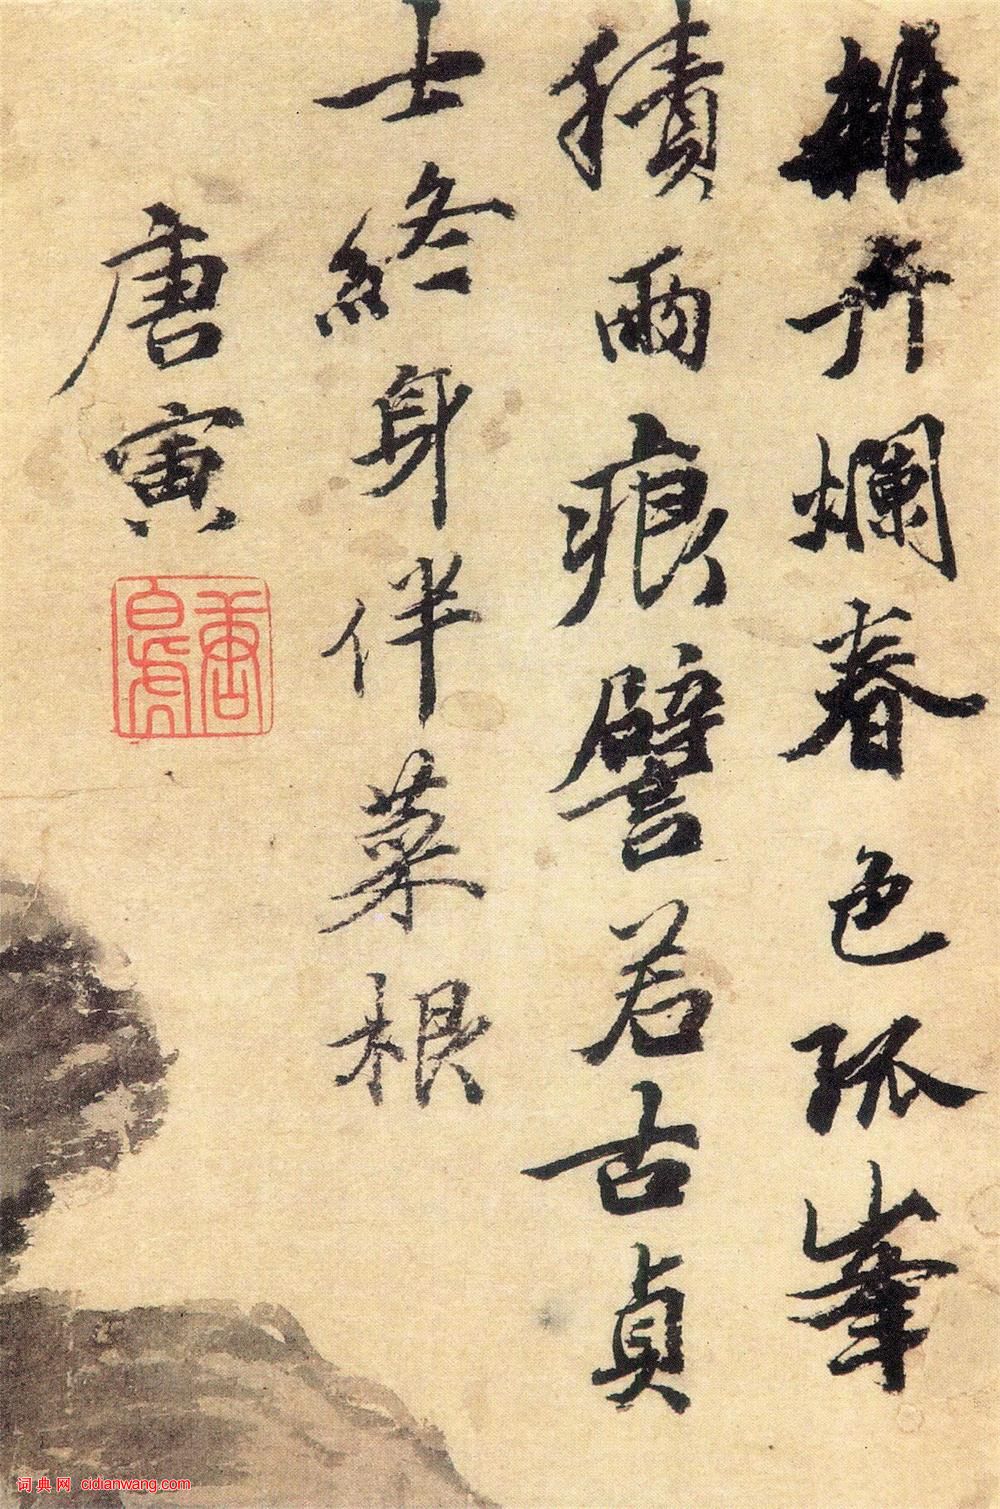 雜卉爛春色孤峯
積雨痕譬若古貞
士終身伴菜根
唐寅
唐寅
词典网 cidianwang.com